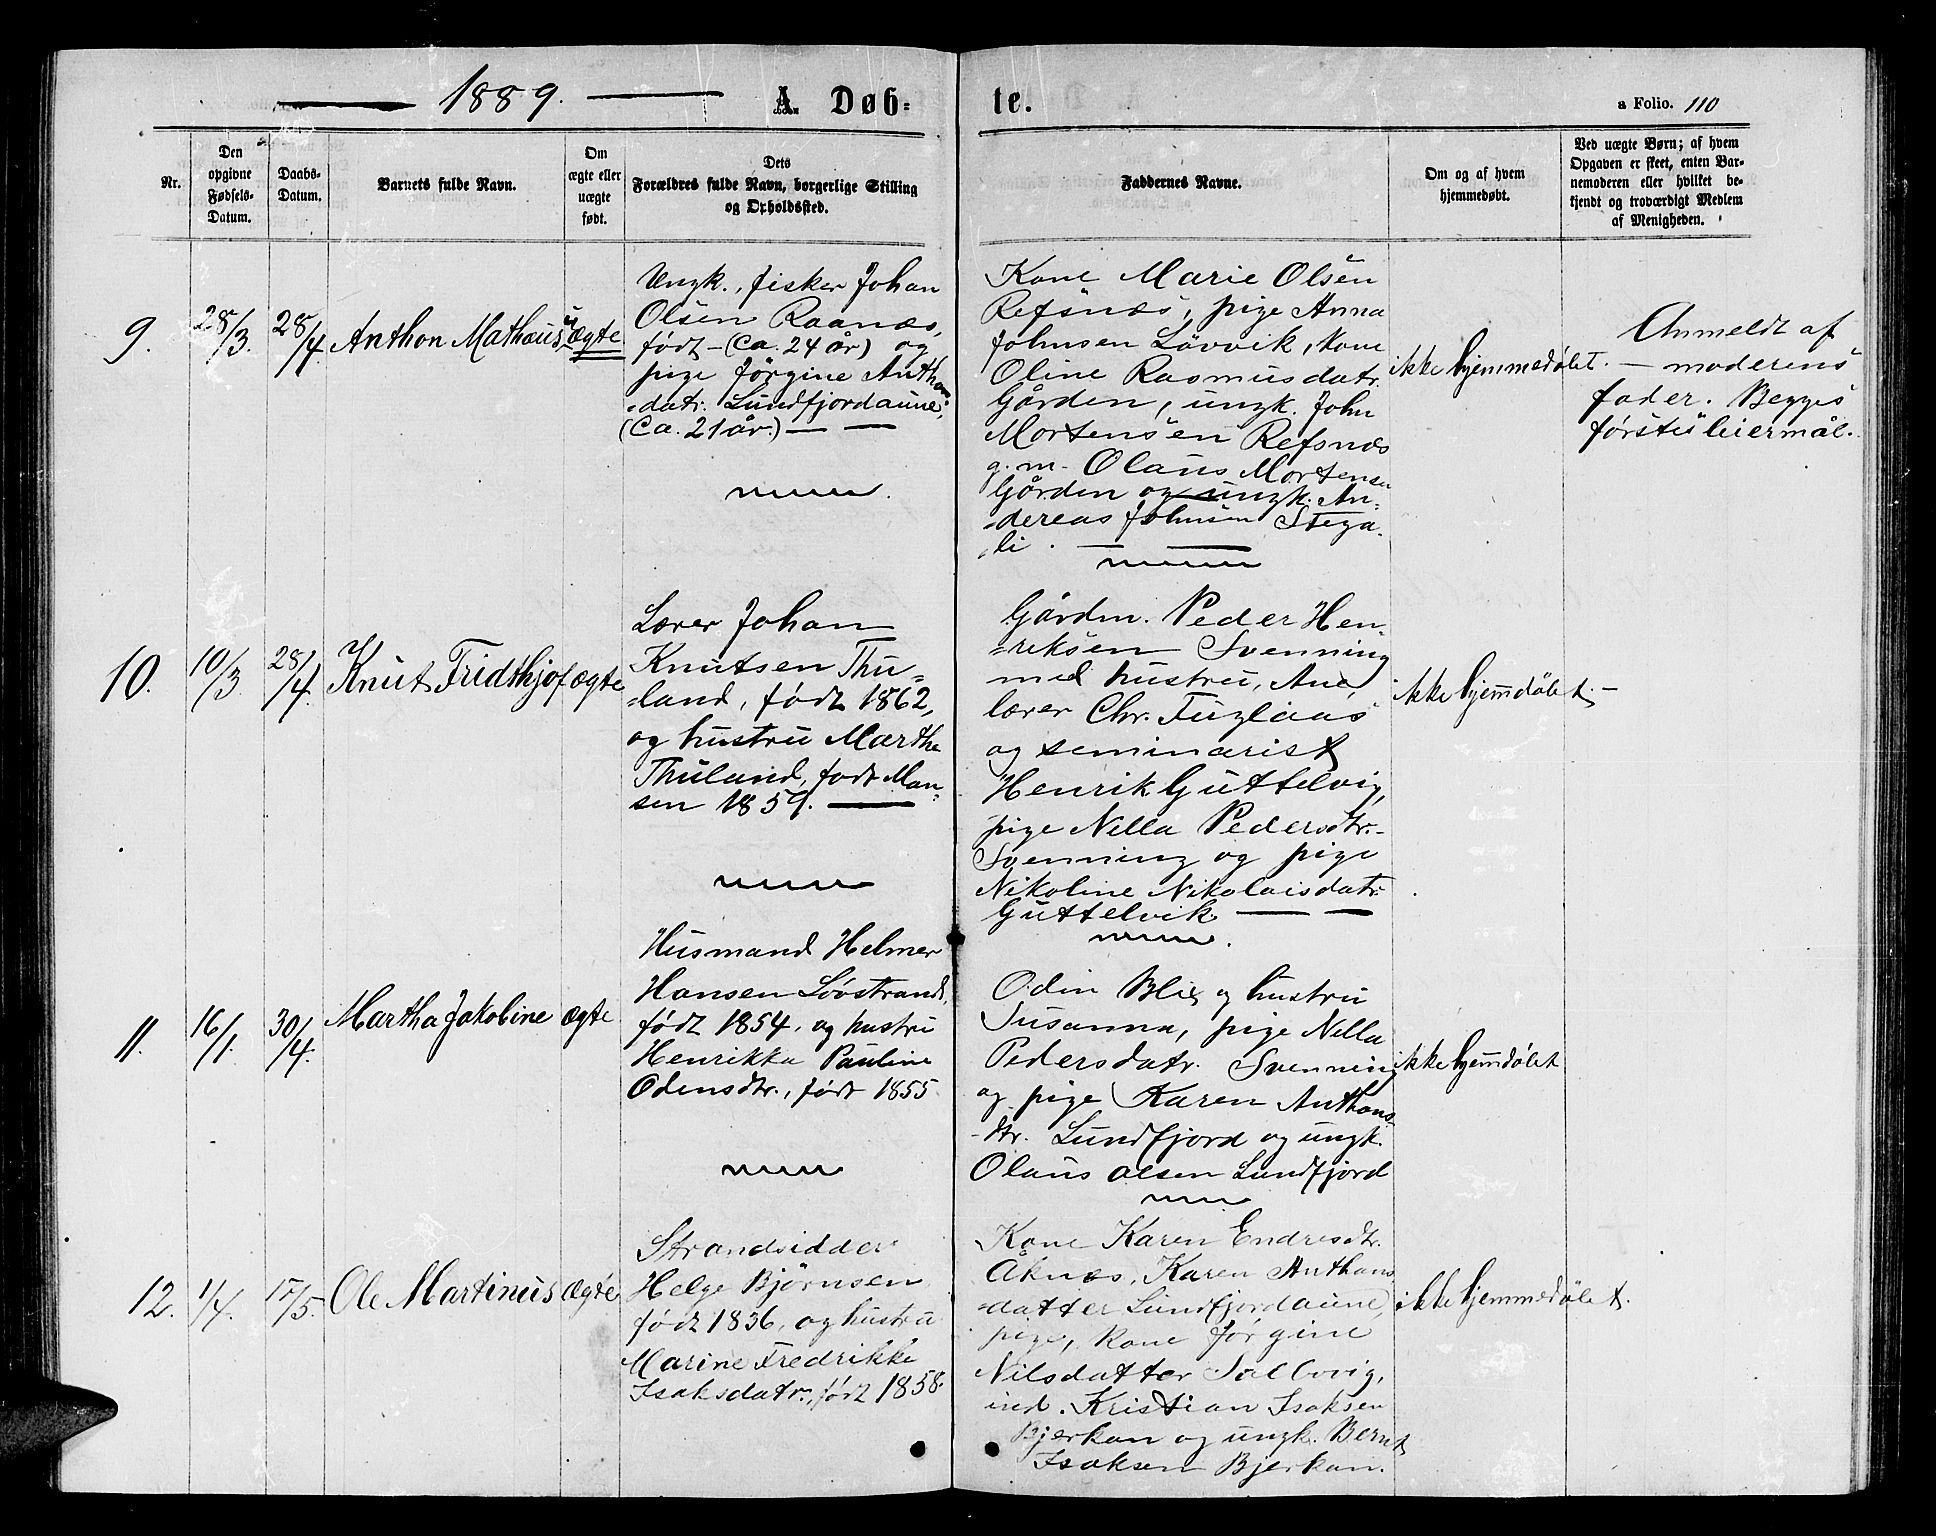 1889.
A. Døb-
te.
a Folio. 110
Nr.
Den
opgivne
Fødsels-
Datum.
Daabs-
Datum.
Barnets fulde Navn.
Om
ægte eller
uægte
født.
Dets
Forældres fulde Navn, borgerlige Stilling
og Opholdssted.
Faddernes Navne.
Om og af hvem
hjemmedøbt.
Ved uægte Børn; af hvem
Opgaven er skeet, enten Bar-
nemoderen eller hvilket be-
kjendt og troværdigt Medlem
af Menigheden.
9.
28/3.
28/4.
Anthon Mathæus
uægte
Ungk., fisker Johan
Olsen Raanæs,
født - (Ca. 24 år) og
pige Jörgine Anthons-
datr. Lundfjordaune,
(Ca. 21 år.)
Kone Marie Olsen
Refsnæs, pige Anna
Johnsen Lövvik, Kone
Oline Rasmusdatr.
Gården, ungk. John
Mortensen Refsnæs
g. m. Olaus Mortensen
Gården og ungk. An-
dereas Johnsen Stega-
li.
ikke hjemmedøbt.
Anmeldt af
moderens
fader. Begges
förste leiermål.
10.
10/3
28/4.
Knut Fridthjof
ægte
Lærer Johan
Knutsen Thu-
land, født 1862,
og hustru Marthe
Thuland, født Man-
sen 1859.
Gårdm. Peder Hen-
riksen Svenning
med hustru, Ane,
lærer Chr. Fuglaas
og seminarist
Henrik Guttelvig,
pige Nella Pedersdtr.
Svenning og pige
Nikoline Nikolaisdatr.
Guttelvik
ikke hjemdøbt.
11.
16/1.
30/4.
Martha Jakobine
ægte
Husmand Helmer
Hansen Lövstrand,
født 1854, og hustru
Henrikka Pauline
Odensdtr., født 1855
Odin Blix og hustru
Susanna, pige Nella
Pedersdatr. Svenning
og pige Karen Anthons-
dtr. Lundfjord og ungk.
Olaus Olsen Lundfjord
ikke hjemdøbt
12.
1/4.
17/5.
Ole Martinus
ægte
Strandsidder
Helge Bjørnsen
født 1836, og hustru
Marine Fredrikke
Isaksdatr., født 1858.
Kone Karen Endresdtr.
Åknæs, Karen Anthons-
datter Lundfjordaune,
pige, kone Jörgine
Nilsdatter Salbovig,
ind. Kristian Isaksen
Bjerkan og ungk. Bernt
Isaksen Bjerkan.
ikke hjemmedøbt.